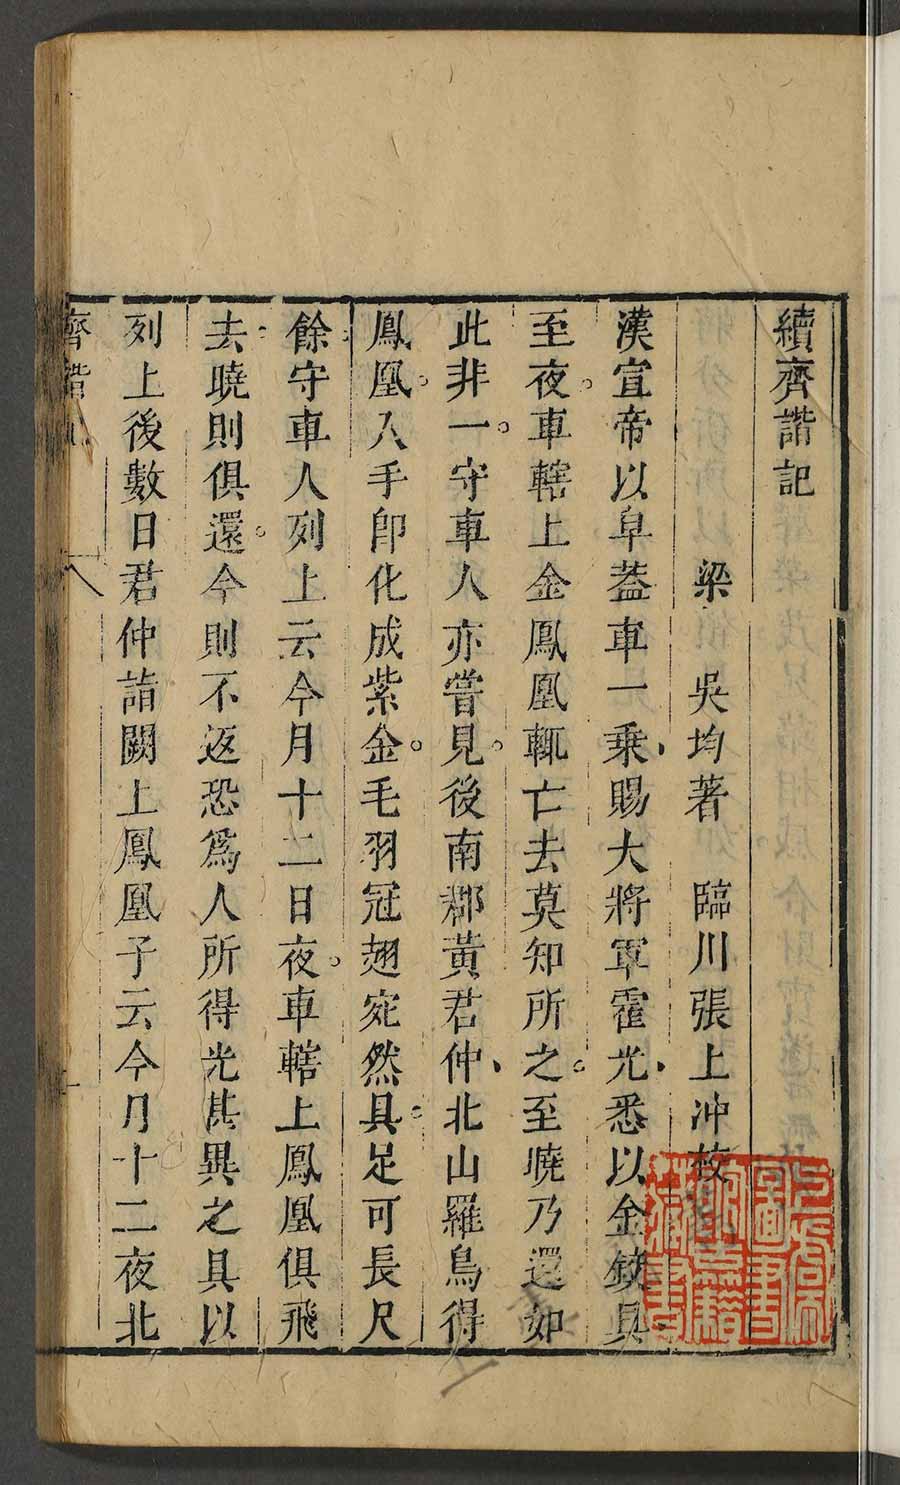 續齊諧記
梁 吳均著 臨川張上冲校
漢宣帝以阜葢車一乗賜大將軍霍光悉以金鋑具
至夜車轄上金鳳凰輒亡去莫知所之至曉乃還如
此非一守車人亦嘗見後南郡黃君仲北山羅鳥得
鳳凰入手卽化成紫金毛羽冠翅宛然具足可長尺
餘守車人列上云今月十二日夜車轄上鳳凰俱飛
去曉則俱還今則不返恐爲人所得光甚異之具以
列上後數日君仲詣闕上鳳凰子云今月十二夜北
齊諧